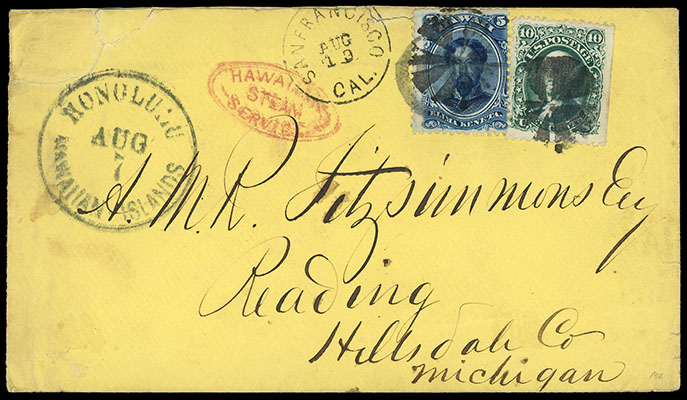 HONOLULU
AUG
7
HAWAIIAN ISLANDS
HAWAIIAN
STEAM
SERVICE
SAN FRANCISCO
AUG
19
CAL.
5 HAWAII 5
ELIMA KENETA
10 10
U.S. POSTAGE
A. M. R. Fitzsimmons Esq
Reading
Hillsdale Co
Michigan